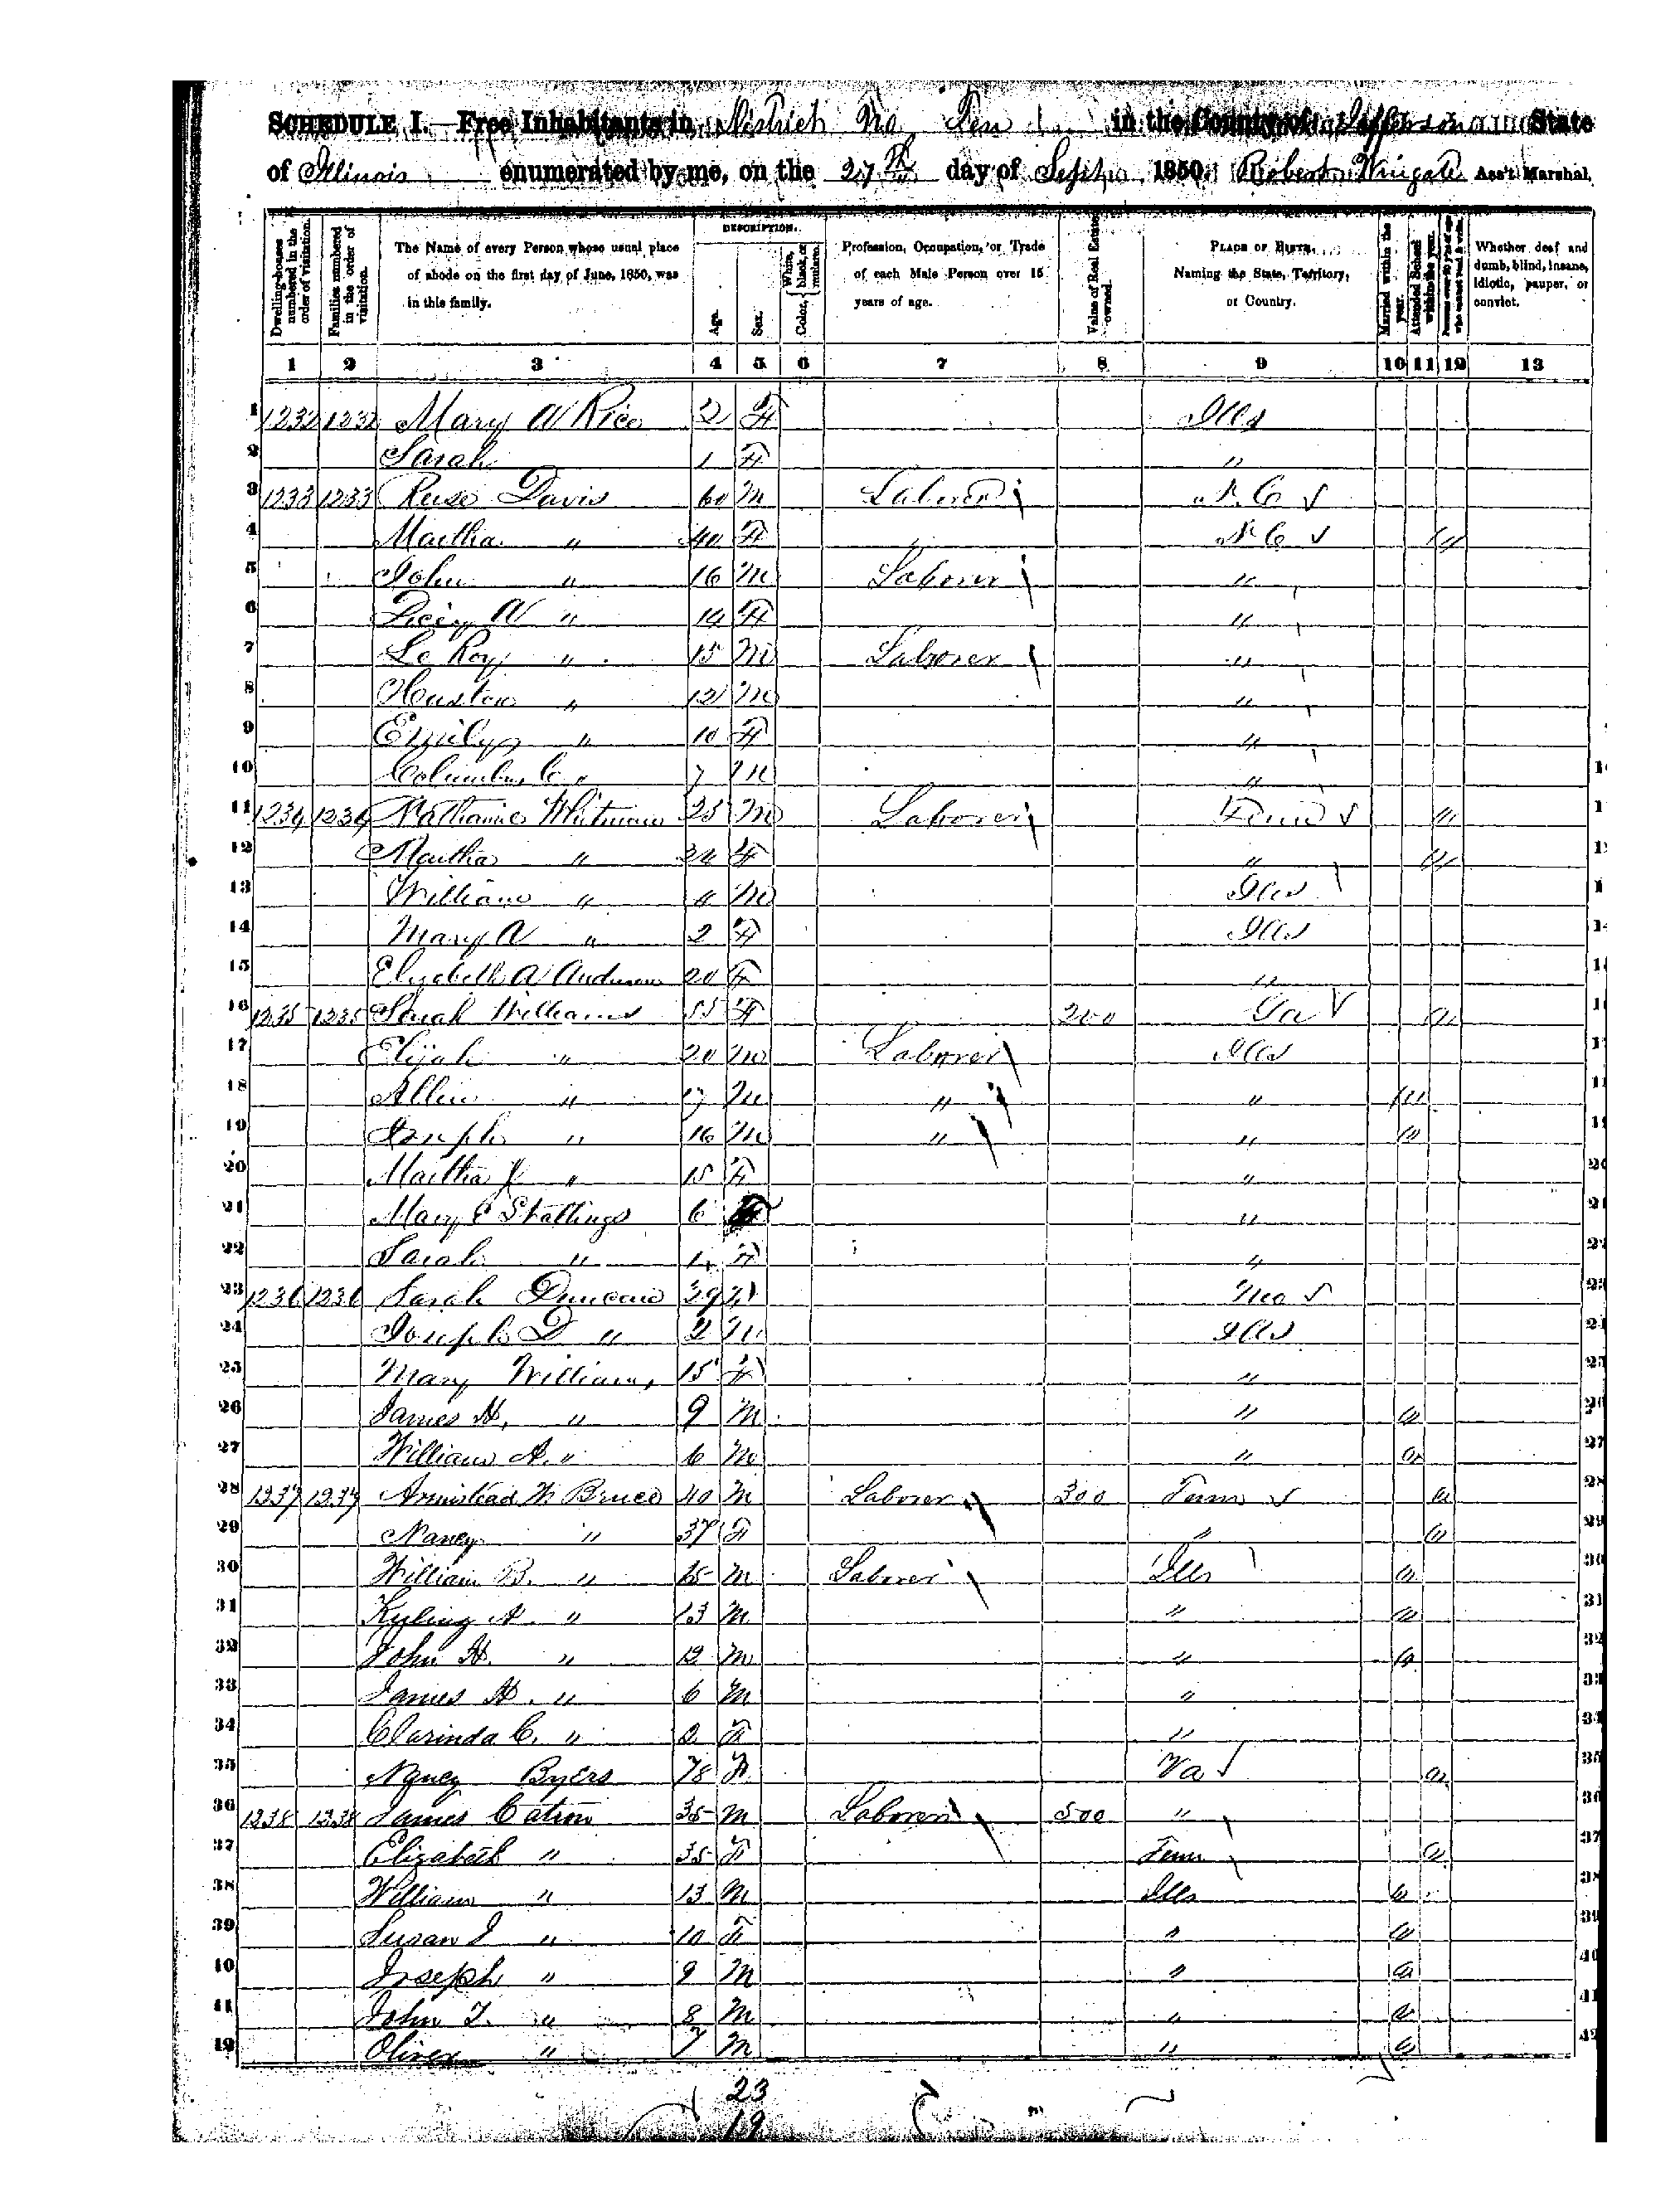 SCHEDULE I.—Free Inhabitants in District No Ten in the County of Jefferson State
of Illinois enumerated by me, on the 27th day of Sept 1850. Robert Wingate Ass't Marshal.
Dwelling-houses numbered in the order of visitation.
Families numbered in the order of visitation.
The Name of every Person whose usual place of abode on the first day of June, 1850, was in this family.
DESCRIPTION.
Age.
Sex.
Color, White, black, or mulatto.
Profession, Occupation, or Trade of each Male Person over 15 years of age.
Value of Real Estate owned.
PLACE OF BIRTH. Naming the State, Territory, or Country.
Married within the year.
Attended School within the year.
Persons over 20 y'rs of age who cannot read & write.
Whether deaf and dumb, blind, insane, idiotic, pauper, or convict.
1 2 3 4 5 6 7 8 9 10 11 12 13
1 1232 1232 Mary A Rice 2 F Ills
2 Sarah 1 F "
3 1233 1233 Davis 60 M Laborer N. C
4 Martha " 40 F N C
5 John " 16 M Laborer "
6 A " 14 F "
7 Le Roy " 15 M Laborer "
8 Huston " 12 M "
9 Emily " 10 F "
10 Columbus C " 7 M "
11 1234 1234 Whitman 25 M Laborer Tenn "
12 Martha " 24 F "
13 William " 4 M Ills
14 Mary A " 2 F Ills
15 Elizabeth A Anderson 20 F "
16 1235 1235 Sarah Williams 55 F 200 Ga
17 Elijah " 20 M Laborer Ills
18 Allen " 17 M " "
19 Joseph " 16 M " "
20 Martha J " 15 F "
21 Mary E Stallings 6 F "
22 Sarah " F "
23 1236 1236 Sarah Duncan 29 F Mo
24 Joseph D " 2 M Ills
25 Mary Williams 15 F "
26 James H. " 9 M "
27 William A. " 6 M "
28 1237 1237 Armistead W. Bruce 40 M Laborer 300 Tenn
29 Nancy " 37 F "
30 William B. " 15 M Laborer Ills
31 A. " 13 M "
32 John H. " 12 M "
33 James H. " 6 M "
34 Clarinda C. " 2 F "
35 Nancy Byers 78 F Va
36 1238 1238 James Catron 35 M Laborer 500 "
37 Elizabeth " 35 F Tenn
38 William " 13 M Ills
39 Susan J " 10 F "
40 Joseph " 9 M "
41 John T. " 8 M "
42 Oliver " 7 M "
23
19